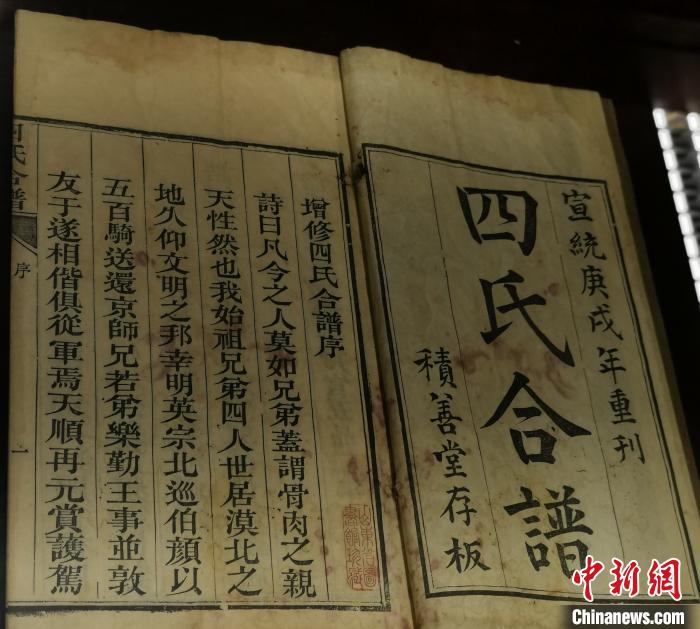 宣統庚戌年重刊
四氏合譜
積善堂存板
增修四氏合譜序
詩曰凡今之人莫如兄弟蓋謂骨肉之親
天性然也我始祖兄弟四人世居漠北之
地久仰文明之邦幸明英宗北巡伯顔以
五百騎送還京師兄若弟樂勤王事並敦
友于遂相偕俱從軍焉天順再元賞護駕
四氏合譜
序
一
中新网
Chinanews.com